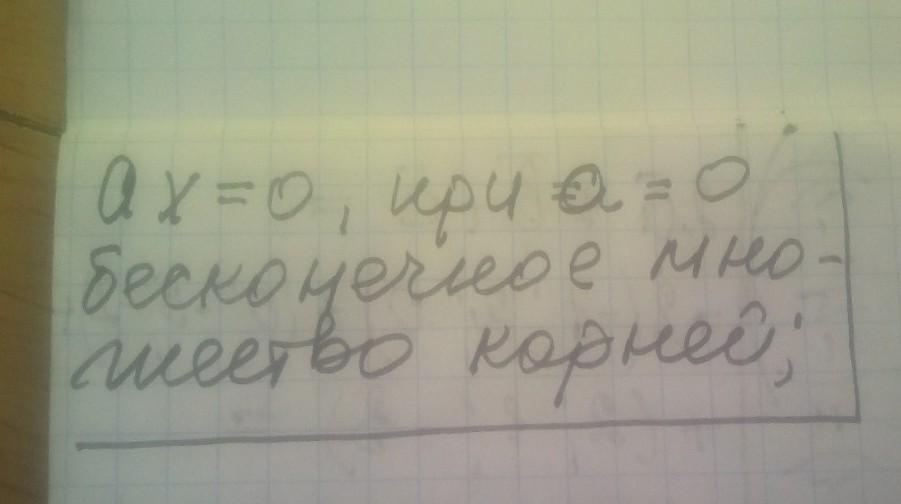 ax = 0, при a = 0
бесконечное мно-
жество корней;